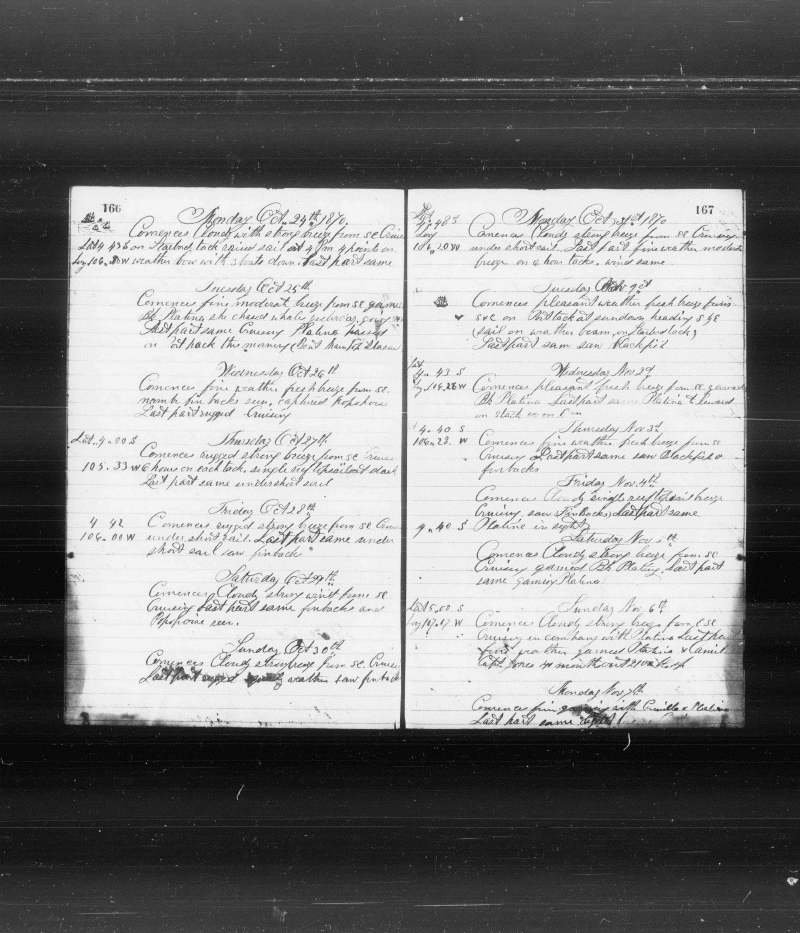 166
Monday Oct 24th 1870.
Comences Cloudy with strong breeze from SE Cruis
Lat 4 43 S on Starbord tack raised sail at 4 Pm 4 points on
Lon 106. W weather bow with boats down. Last part same
Tuesday Oct 25th
Comences fine moderate breeze from SE gamed
Bk Platina she chased whales
Last part same Cruising Platina
on Port tack this morning
Wednesday Oct 26th
Comences fine weather fresh breeze from SE.
number fin backs seen. captured Porpoise
Last part rugged Cruising
Lat 4.00 S Thursday Oct 27th
Comences rugged strong breeze from SE Cruise
105.33 W 6 hours on each tack. single reef topsail
Last part same under short sail
Friday Oct 28th
4 42 Comences rugged strong breeze from SE Cruise
106.00 W under short sail. Last part same under
short sail saw finback
Saturday Oct 29th
Comences Cloudy strong winds from SE
Cruising Last part same finbacks and
Porpoise seen.
Sunday Oct 30th
Comences Cloudy strong breeze from SE Cruise
Last part rugged weather saw finback
167
Monday Oct 31st 1870
4.48 S Comences Cloudy strong breeze from SE Cruising
Lon
106.20 W under short sail. Last part fine weather moderate
breeze on 6 hour tacks. wind same
Tuesday Nov 1st
Comences pleasant weather fresh breeze from
SxE on Port tack at sundown heading
(sail on weather beam, on Starbord tack)
Last part same saw Blackfish
Lat
4. 43 S Wednesday Nov 2d
Lon. 106.28 W Comences pleasant fresh breeze from SE gamed
Bk Platina Last part same Platina to leward
4. 40 S Thursday Nov 3d
106.28 W Comences fine weather fresh breeze from SE
Cruising Last part same saw Blackfish &
finbacks
Friday Nov. 4th
Comences Cloudy single reef topsail breeze
Cruising, saw Finbacks, Last part same
4. 40 S Platina in sight
Saturday Nov. 5th
Comences Cloudy strong breeze from SE
Cruising gamed Bk Platina, Last part
same gaming Platina
Lat 5.00 S Sunday Nov. 6th
Comences Cloudy strong breeze from ESE
Cruising in company with Platina Last part
fine weather gamed Platina & Camilla
Capt. Jones months out
Monday Nov 7th
Comences fine gaming with Camilla & Platina
Last part same